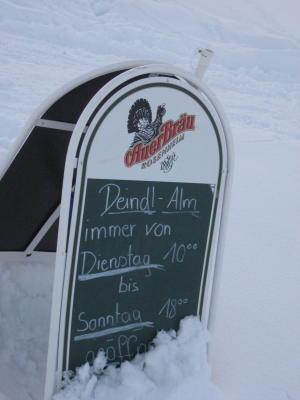 AuerBräu
ROSENHEIM
Deindl-Alm
immer von
Dienstag 10⁰⁰
bis
Sonntag 18⁰⁰